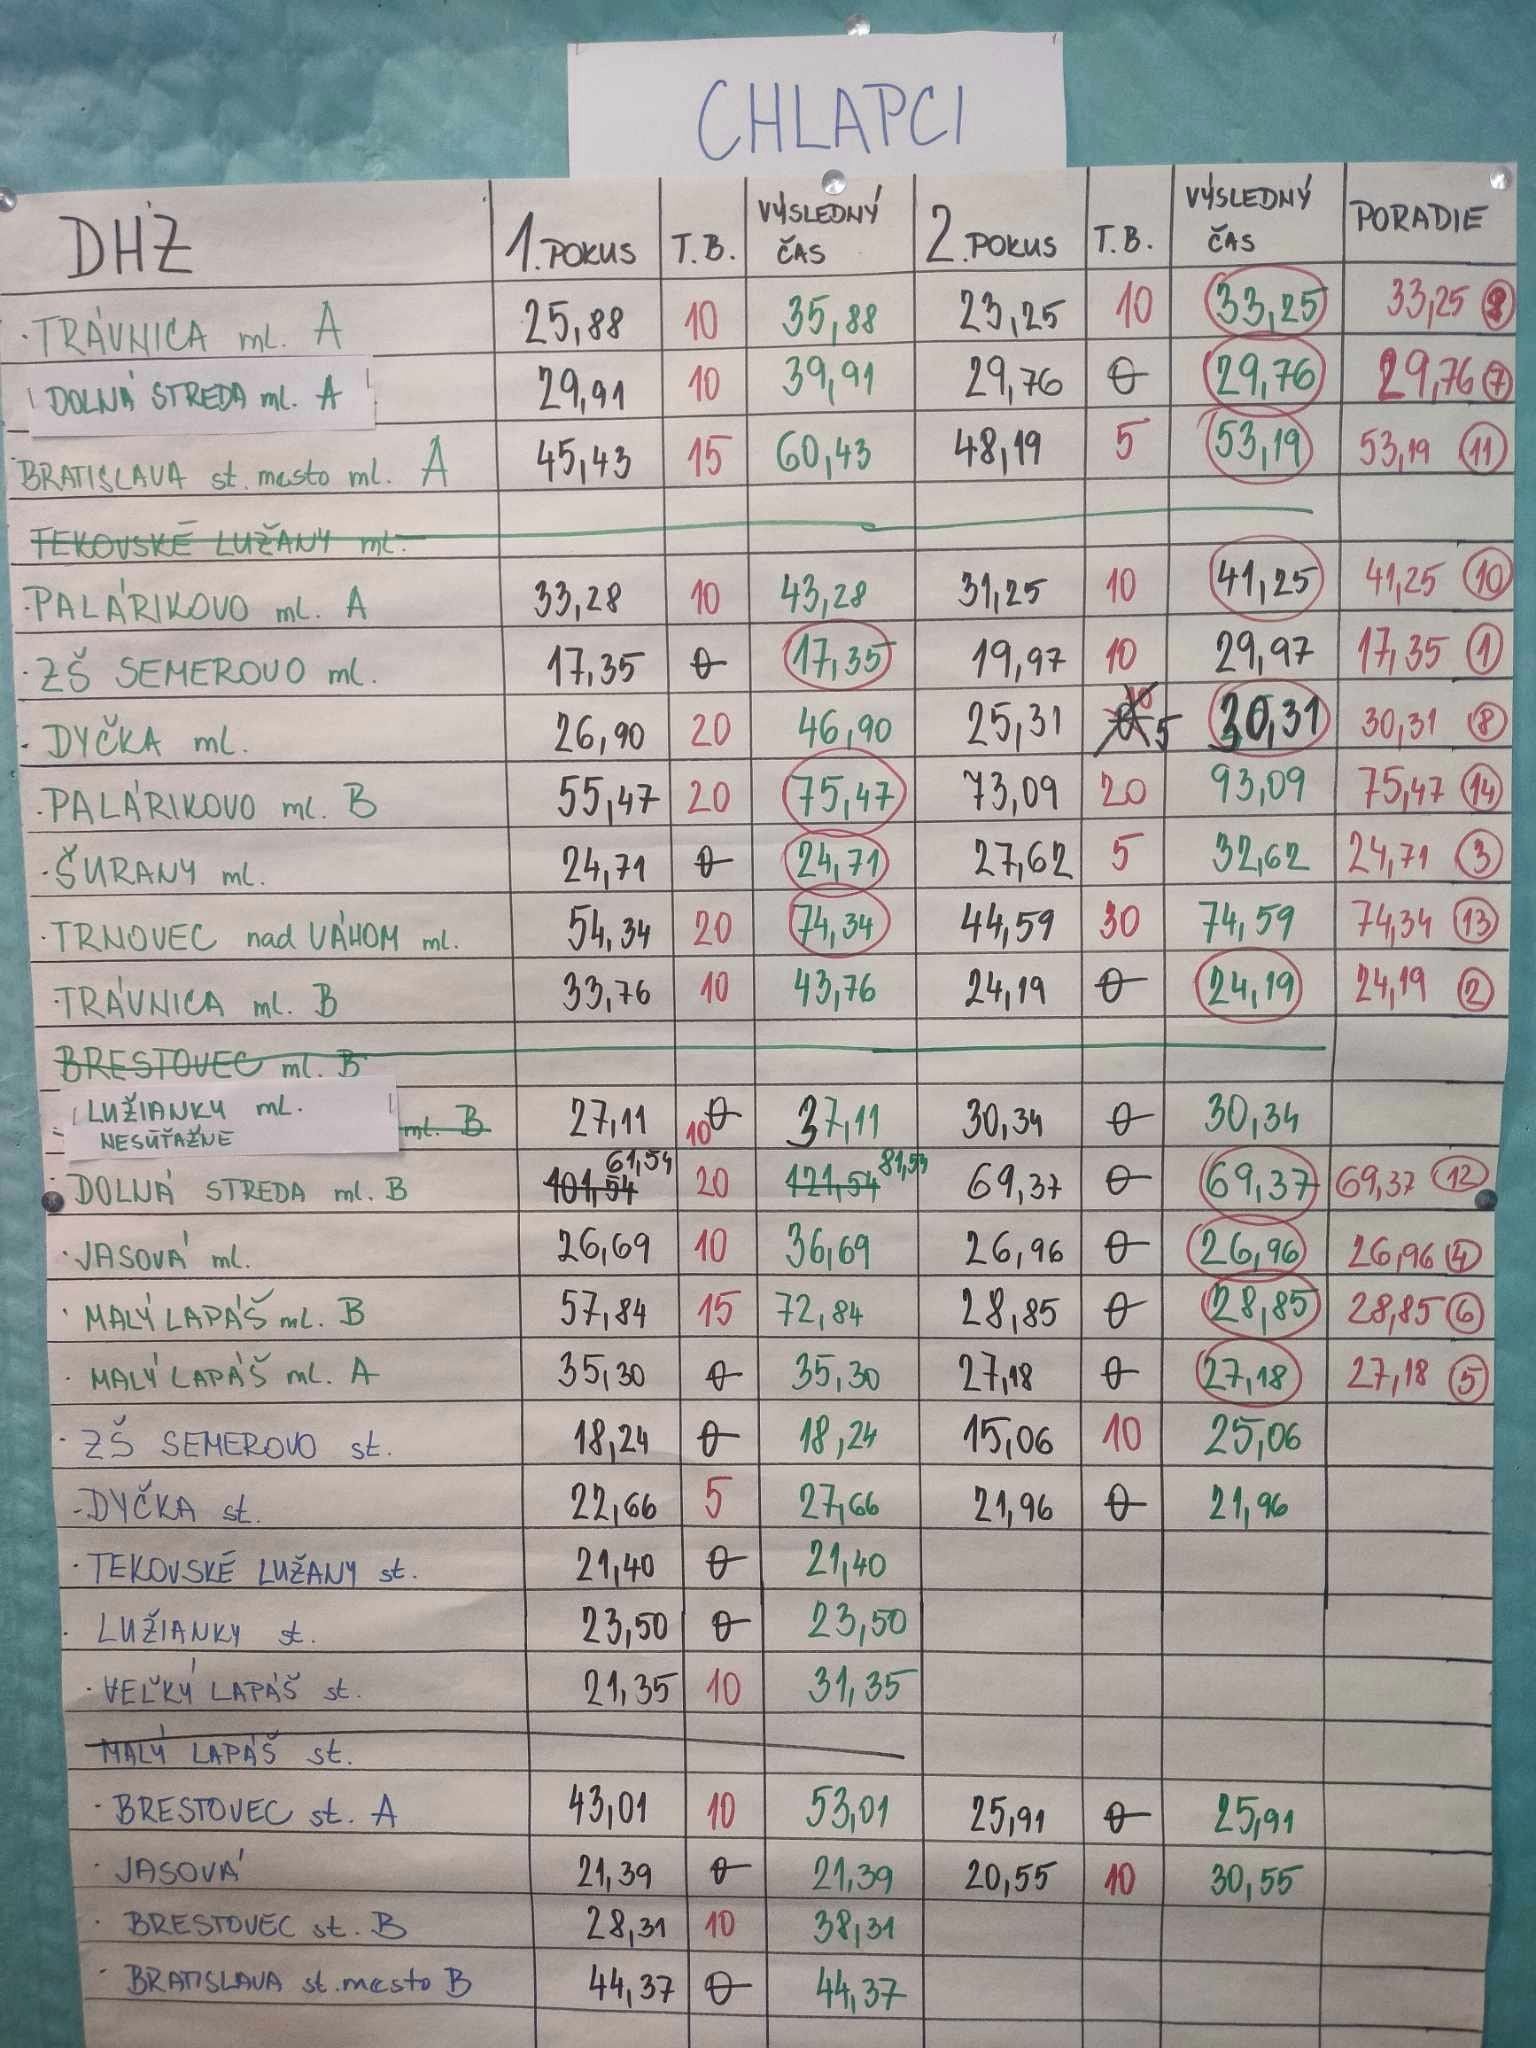 CHLAPCI
DHZ 1. POKUS T.B. VÝSLEDNÝ ČAS 2. POKUS T.B. VÝSLEDNÝ ČAS PORADIE
· TRÁVNICA ml. A 25,88 10 35,88 23,25 10 33,25 33,25
DOLNÁ STREDA ml. A 29,91 10 39,91 29,76 0 29,76 29,76 7
BRATISLAVA st. mesto ml. A 45,43 15 60,43 48,19 5 53,19 53,19 11
TEKOVSKÉ LUŽANY ml.
· PALÁRIKOVO ml. A 33,28 10 43,28 31,25 10 41,25 41,25 10
· ZŠ SEMEROVO ml. 17,35 0 17,35 19,97 10 29,97 17,35 1
- DYČKA ml. 26,90 20 46,90 25,31 5 30,31 30,31 8
· PALÁRIKOVO ml. B 55,47 20 75,47 73,09 20 93,09 75,47 14
· ŠURANY ml. 24,71 0 24,71 27,62 5 32,62 24,71 3
· TRNOVEC nad VÁHOM ml. 54,34 20 74,34 44,59 30 74,59 74,34 13
· TRÁVNICA ml. B 33,76 10 43,76 24,19 0 24,19 24,19 2
BRESTOVEC ml. B
LUŽIANKY ml. ml. B 27,11 10 0 37,11 30,34 0 30,34
NESÚŤAŽNE
61,54 81,54
DOLNÁ STREDA ml. B 101,54 20 121,54 69,37 0 69,37 69,37 12
· JASOVÁ ml. 26,69 10 36,69 26,96 0 26,96 26,96 4
· MALÝ LAPÁŠ ml. B 57,84 15 72,84 28,85 0 28,85 28,85 6
· MALÝ LAPÁŠ ml. A 35,30 0 35,30 27,18 0 27,18 27,18 5
· ZŠ SEMEROVO st. 18,24 0 18,24 15,06 10 25,06
- DYČKA st. 22,66 5 27,66 21,96 0 21,96
· TEKOVSKÉ LUŽANY st. 21,40 0 21,40
· LUŽIANKY st. 23,50 0 23,50
· VEĽKÝ LAPÁŠ st. 21,35 10 31,35
MALÝ LAPÁŠ st.
· BRESTOVEC st. A 43,01 10 53,01 25,91 0 25,91
· JASOVÁ 21,39 0 21,39 20,55 10 30,55
· BRESTOVEC st. B 28,31 10 38,31
· BRATISLAVA st. mesto B 44,37 0 44,37